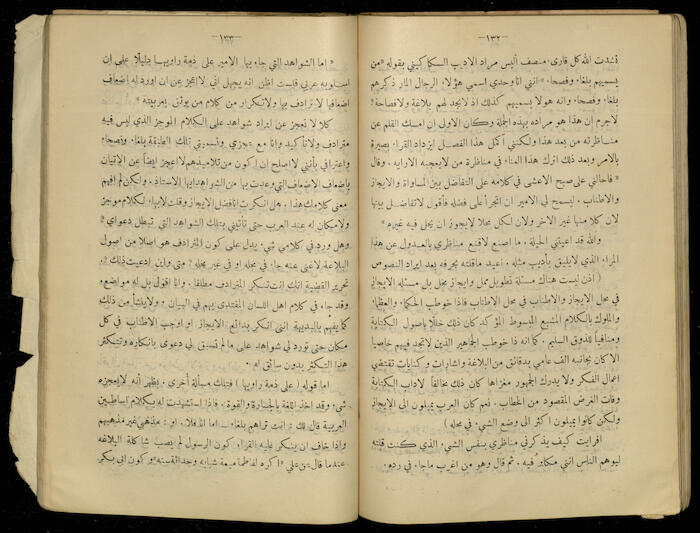 — ١٣٢ —
نشدت الله كل قارىء منصف أليس مراد الاديب السكاكيني بقوله «من
يسميهم بلغاء وفصحاء» انني انا وحدي اسمي هؤلاء الرجال المار ذكرهم
بلغاء وفصحاء وانه هو لا يسميهم كذلك اذ لا يجد لهم بلاغة ولا فصاحة؟
لا جرم ان هذا هو مراده بهذه الجملة وكان الاولى ان امسك القلم عن
مناظرته من بعد هذا ولكنني اكمل هذا الفصل ليزداد القراء بصيرة
بالامر وبعد ذلك اترك هذا العناء في مناظرة من لا يعجبه الا رايه. وقال
«فاحالني على صبح الاعشى في كلامه على التفاضل بين المساواة والايجاز
والاطناب. ليسمح لي الامير ان اتجرأ على فضله فأقول لا تفاضل بينها
لان كلا منها غير الآخر ولان لكل محلا لا يجوز ان يحل فيه غيره»
والله قد اعيتني الحيلة. ما اصنع لاقنع مناظري بالعدول عن هذا
المراء الذي لا يليق بأديب مثله. أعيد ما قلته بحرفه بعد ايراد النصوص
(اذن ليست هناك مسئلة تطويل ممل وايجاز مخل بل مسئلة الايجاز
في محل الايجاز والاطناب في محل الاطناب فاذا خوطب الحكماء والعظماء
والملوك بالكلام المشبع المبسوط المؤكد كان ذلك خللا بأصول الكتابة
ومنافياً للذوق السليم. كما انه اذا خوطب الجماهير الذين لا تجد فيهم خاصيا
الا كان بجانبه الف عامي بدقائق من البلاغة واشارات وكنايات تقتضي
اعمال الفكر ولا يدرك الجمهور مغزاها كان ذلك مخالفاً لآداب الكتابة
وفات الغرض المقصود من الخطاب. نعم كان العرب يميلون الى الايجاز
ولكن كانوا يميلون اكثر الى وضع الشيء في محله)
افرايت كيف يذكرني مناظري بنفس الشيء الذي كنت قلته
ليوهم الناس انني مكابر فيه. ثم قال وهو من اغرب ما جاء في رده.
— ١٣٣ —
«اما الشواهد التي جاء بها الامير على ذمة راويها دليلا على ان
اسلوبه عربي فلست اظن انه يجهل اني لا اعجز عن ان اورد له اضعاف
اضعافها لا ترادف بها ولا تكرار من كلام من يوثق بعربيته»
كلا لا نعجز عن ايراد شواهد على الكلام الموجز الذي ليس فيه
مترادف ولا تأكيد وانا مع عجزي وتسميتي تلك الطبقة بلغاء وفصحاء
واعترافي بأنني لا اصلح ان اكون من تلاميذهم لا اعجز ايضاً عن الاتيان
بأضعاف الاضعاف التي وعدت بها من الشواهد ايها الاستاذ. ولكن لم افهم
معنى كلامك هذا. هل انكرت انا فضل الايجاز وقلت لا بهاء لكلام موجز
ولا مكان له عند العرب حتى تأتيني بتلك الشواهد التي تبطل دعواي؟
وهل ورد في كلامي شيء يدل على كون المترادف هو اصلا من اصول
البلاغة لا غنى عنه جاء في محله او في غير محله؟ متى واين ادعيت ذلك؟.
تحرير القضية انك انت تنكر المترادف مطلقا. وانا اقول بل له مواضع.
وقد جاء في كلام اهل اللسان المقتدى بهم في البيان. ولا ينشأ من ذلك
كما يفهم بالبديهة انني انكر بدائع الايجاز او اوجب الاطناب في كل
مكان حتى تورد لي شواهد على ما لم تسبق لي دعوى بانكاره وتتكثر
هذا التكثر بدون سائق له.
اما قوله (على ذمة راويها) فتلك مسألة أخرى. يظهر أنه لا يعجزه
شيء. وقد اخذ اللغة بالجدارة والقوة. فاذا استشهدت له بكلام اساطين
العربية قال لك: انت تراهم بلغاء. اما انا فلا. او: مذهبي غير مذهبهم
واذا خاف ان ينكر عليه القراء كون الرسول لم يصب شاكلة البلاغة
عندما قال عن علي «اكره لفاطمة ميعة شبابه وحداثة سنه» وكون ابي بكر